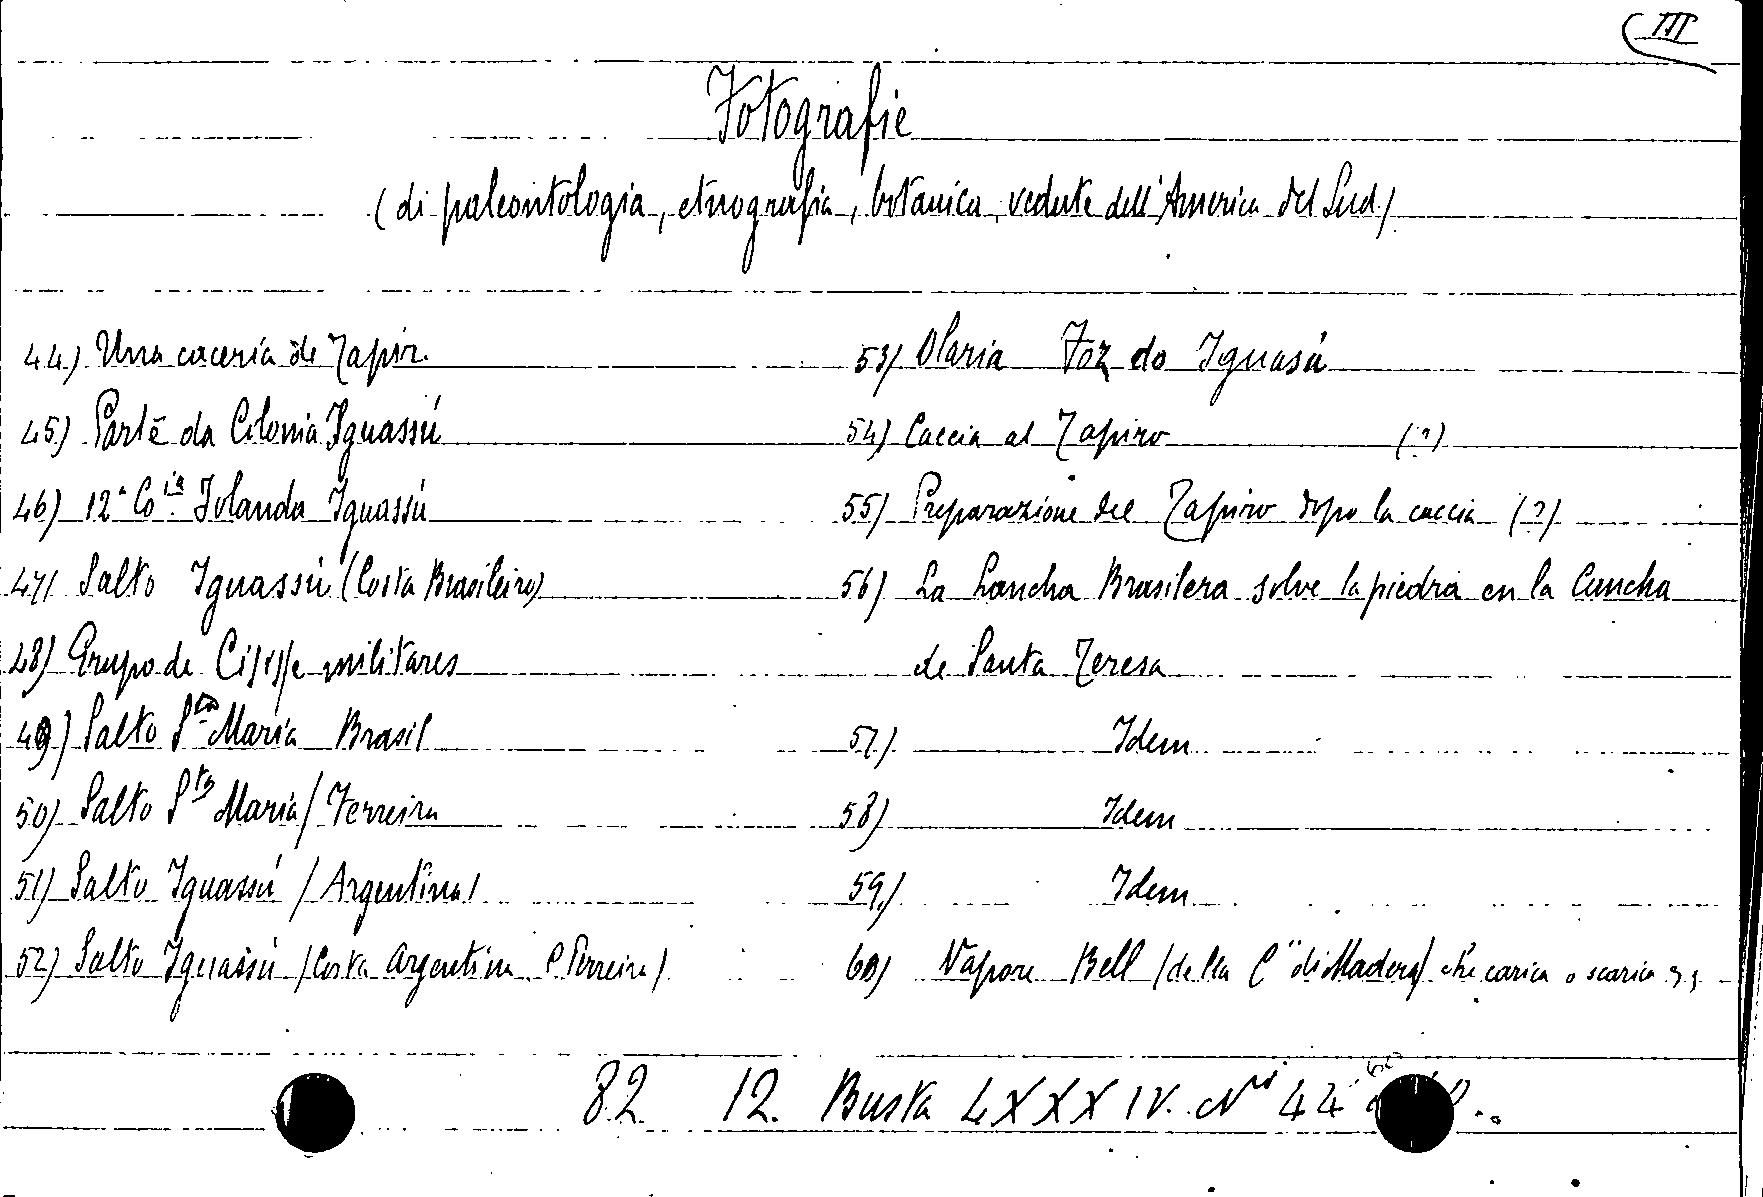 III
Fotografie
(di paleontologia, etnografia, botanica, vedute dell'America del Sud)
44) Una caceria de Tapir.
45) Parte da Colonia Iguassú
46) 12ª Coia. Iolanda Iguassú
47) Salto Iguassú (Costa Brasileiro)
48) Grupo de militares
49) Salto Sta Maria Brasil
50) Salto Sta Maria (Ferreira
51) Salto Iguassú (Argentina)
52) Salto Iguassú (Costa Argentina P Ferreira)
53) Olaria Foz do Iguasú
54) Caccia al Tapiro (?)
55) Preparazione del Tapiro dopo la caccia (?)
56) La Lancha Brasilera solve la piedra en la Cancha
de Santa Teresa
57) Idem
58) Idem
59) Idem
60) Vapore Bell (della C" di Madera) che carica o scarica
82 12. Busta LXXXIV. Ni 44 60